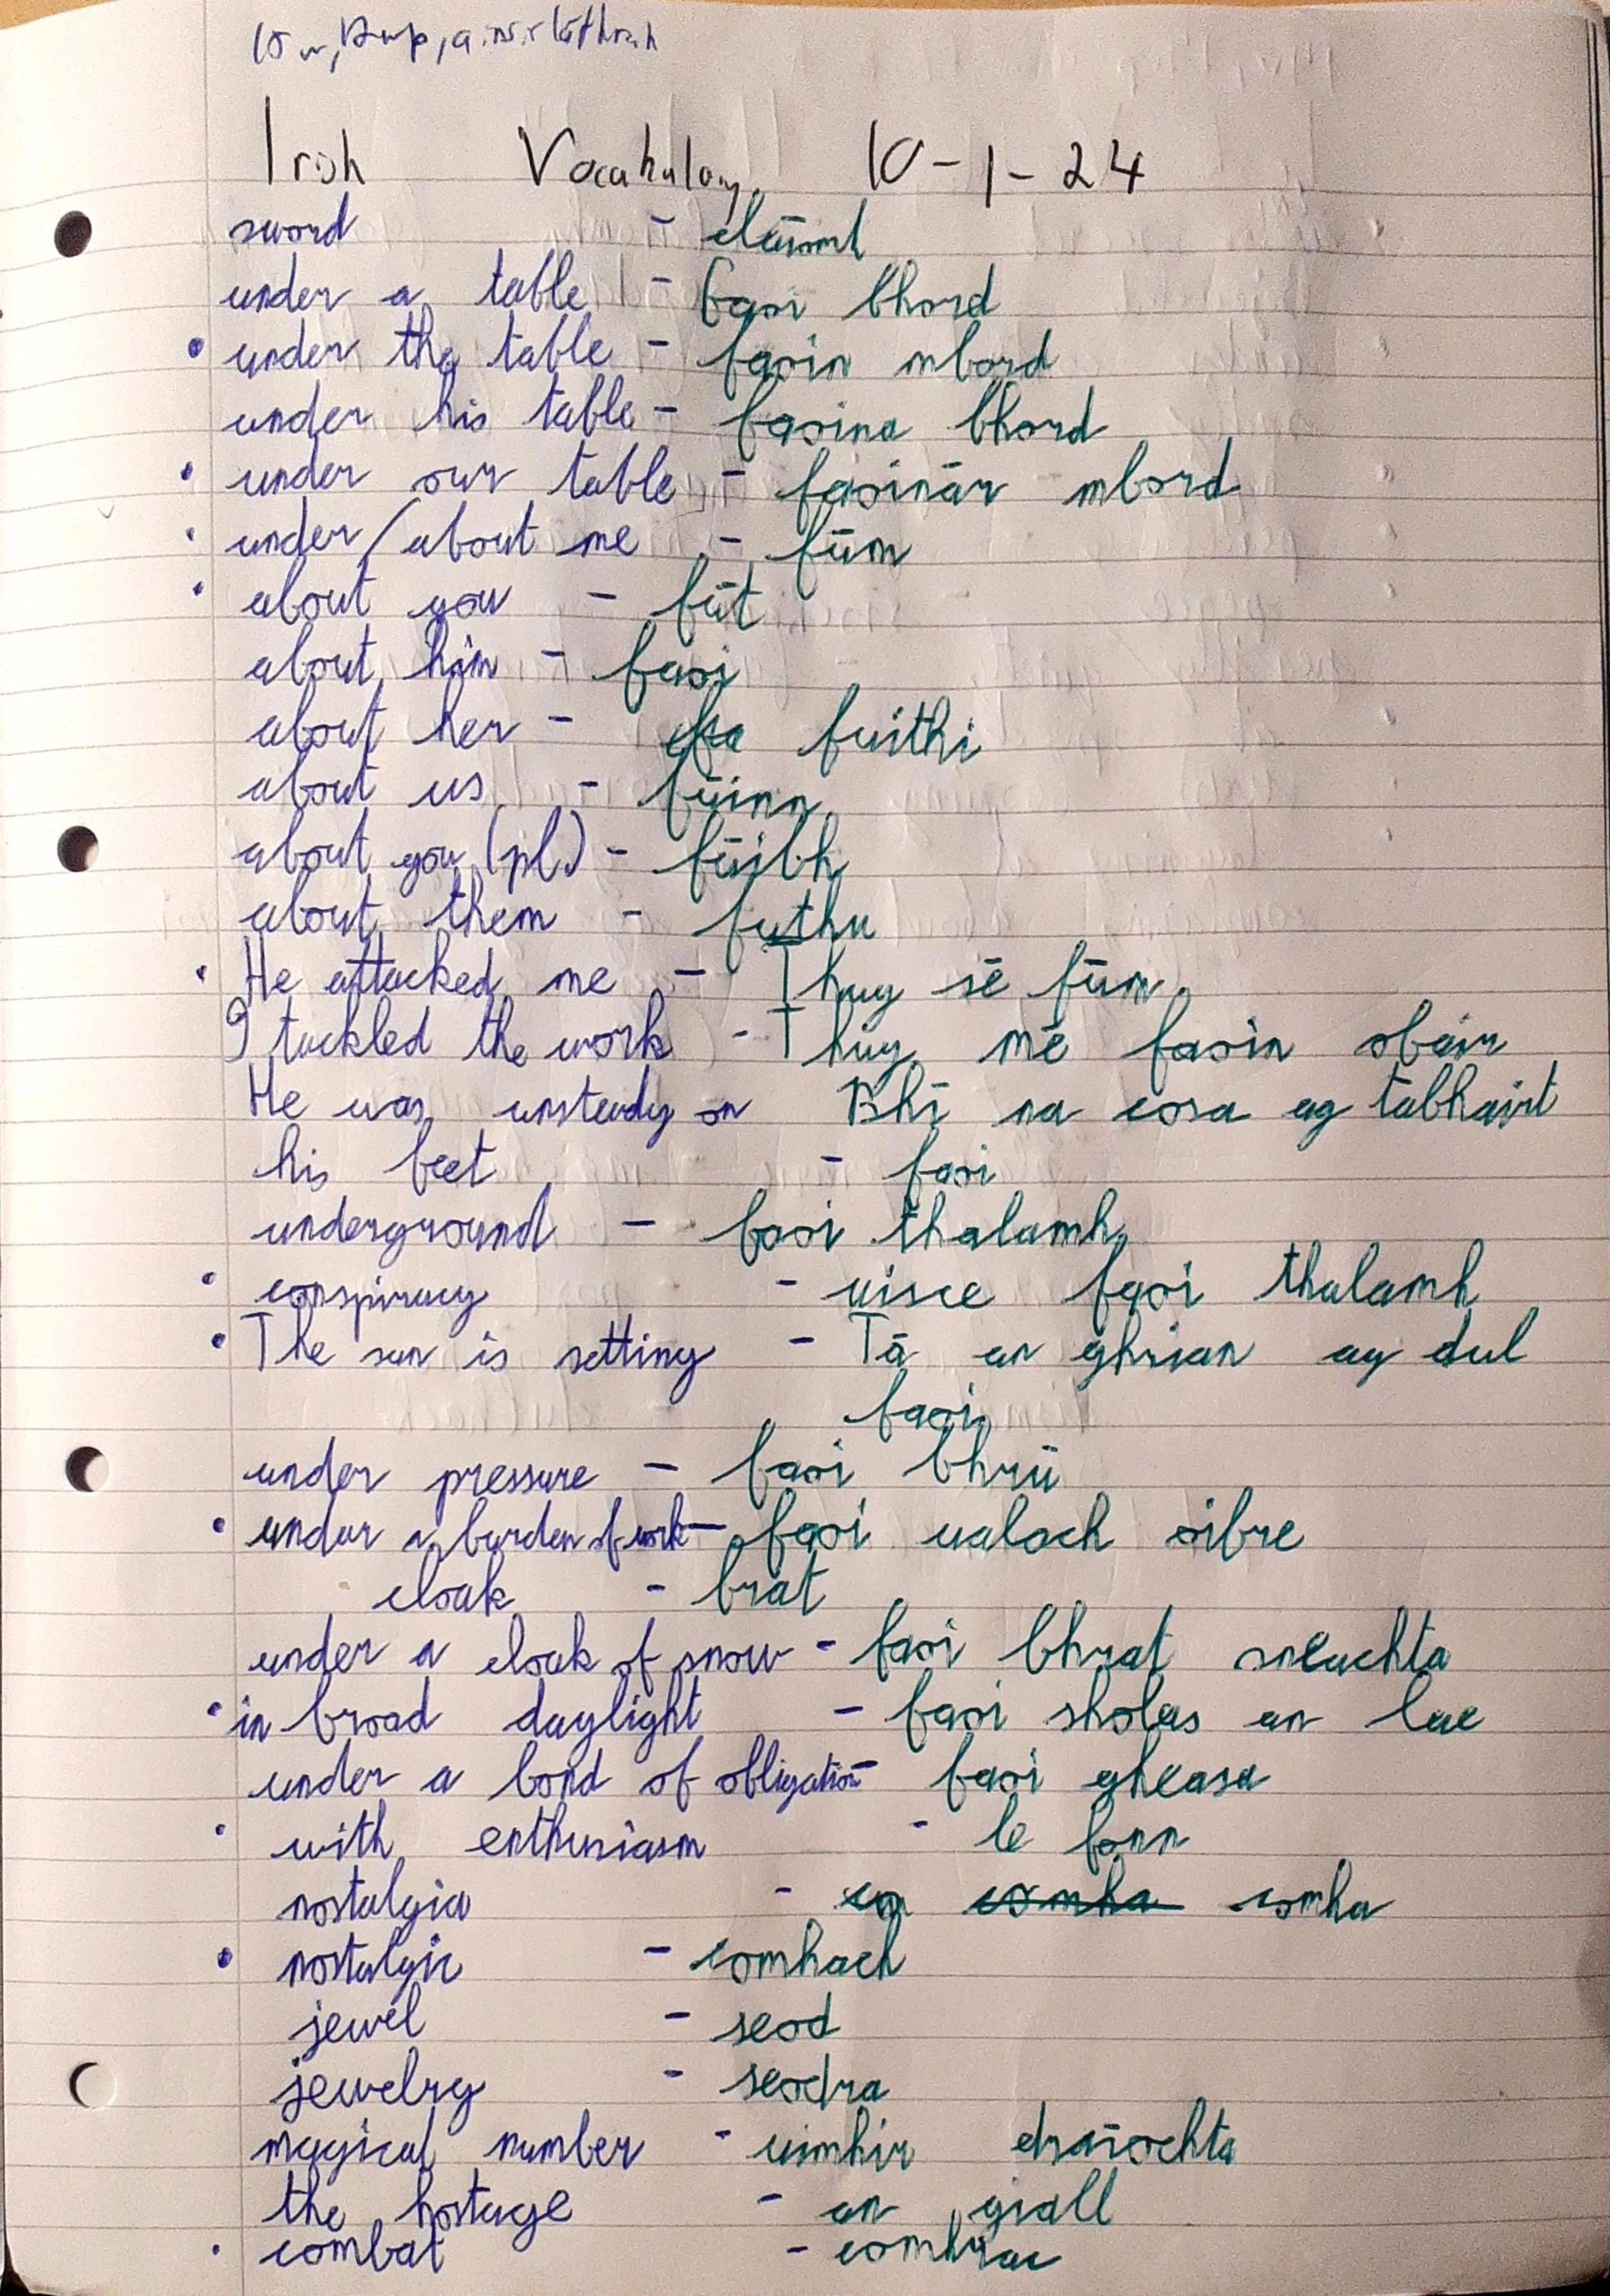 Irish Vocabulary 10-1-24
sword - claíomh
under a table - faoi bhord
under the table - faoin mbord
under his table - faoina bhord
under our table - faoinár mbord
under/about me - fúm
about you - fút
about him - faoi
about her - fuithi
about us - fúinn
about you (pl.) - fúibh
about them - futhu
He attacked me - Thug sé fúm
I tackled the work - Thug mé faoin obair
He was unsteady on Bhí na cosa ag tabhairt
his feet - faoi
underground - faoi thalamh
conspiracy - uisce faoi thalamh
The sun is setting - Tá an ghrian ag dul
faoi
under pressure - faoi bhrú
under a burden of work - faoi ualach oibre
cloak - brat
under a cloak of snow - faoi bhrat sneachta
in broad daylight - faoi sholas an lae
under a bond of obligation - faoi gheasa
with enthusiasm - le fonn
nostalgia - cumha cumha
nostalgic - cumhach
jewel - seod
jewelry - seodra
magical number - uimhir draíochta
the hostage - an giall
combat - comhrac